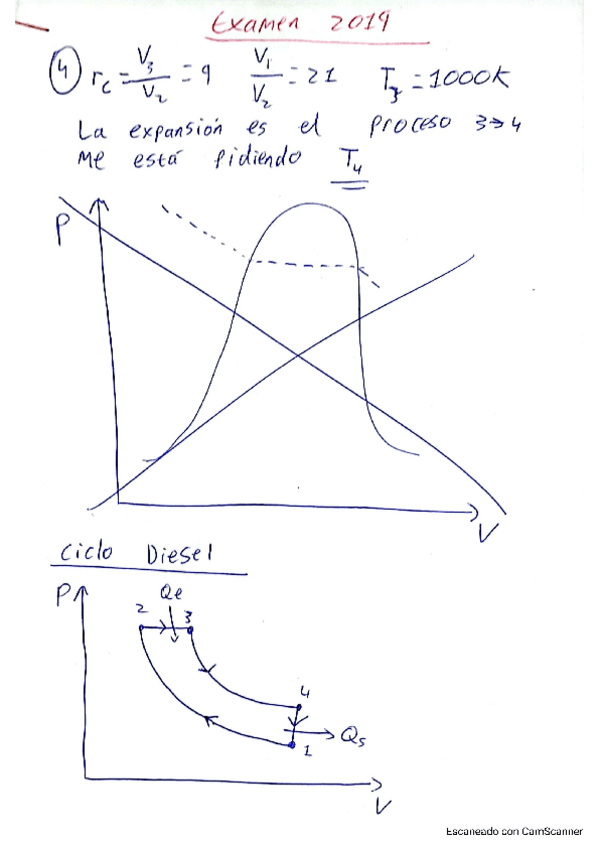 Examen 2019
4 rc = V3/V2 = 9 V1/V2 = 21 T3 = 1000K
La expansión es el proceso 3→4
Me está pidiendo T4
P
V
Ciclo Diesel
P Qe
2 3
4
Qs
1
V
Escaneado con CamScanner